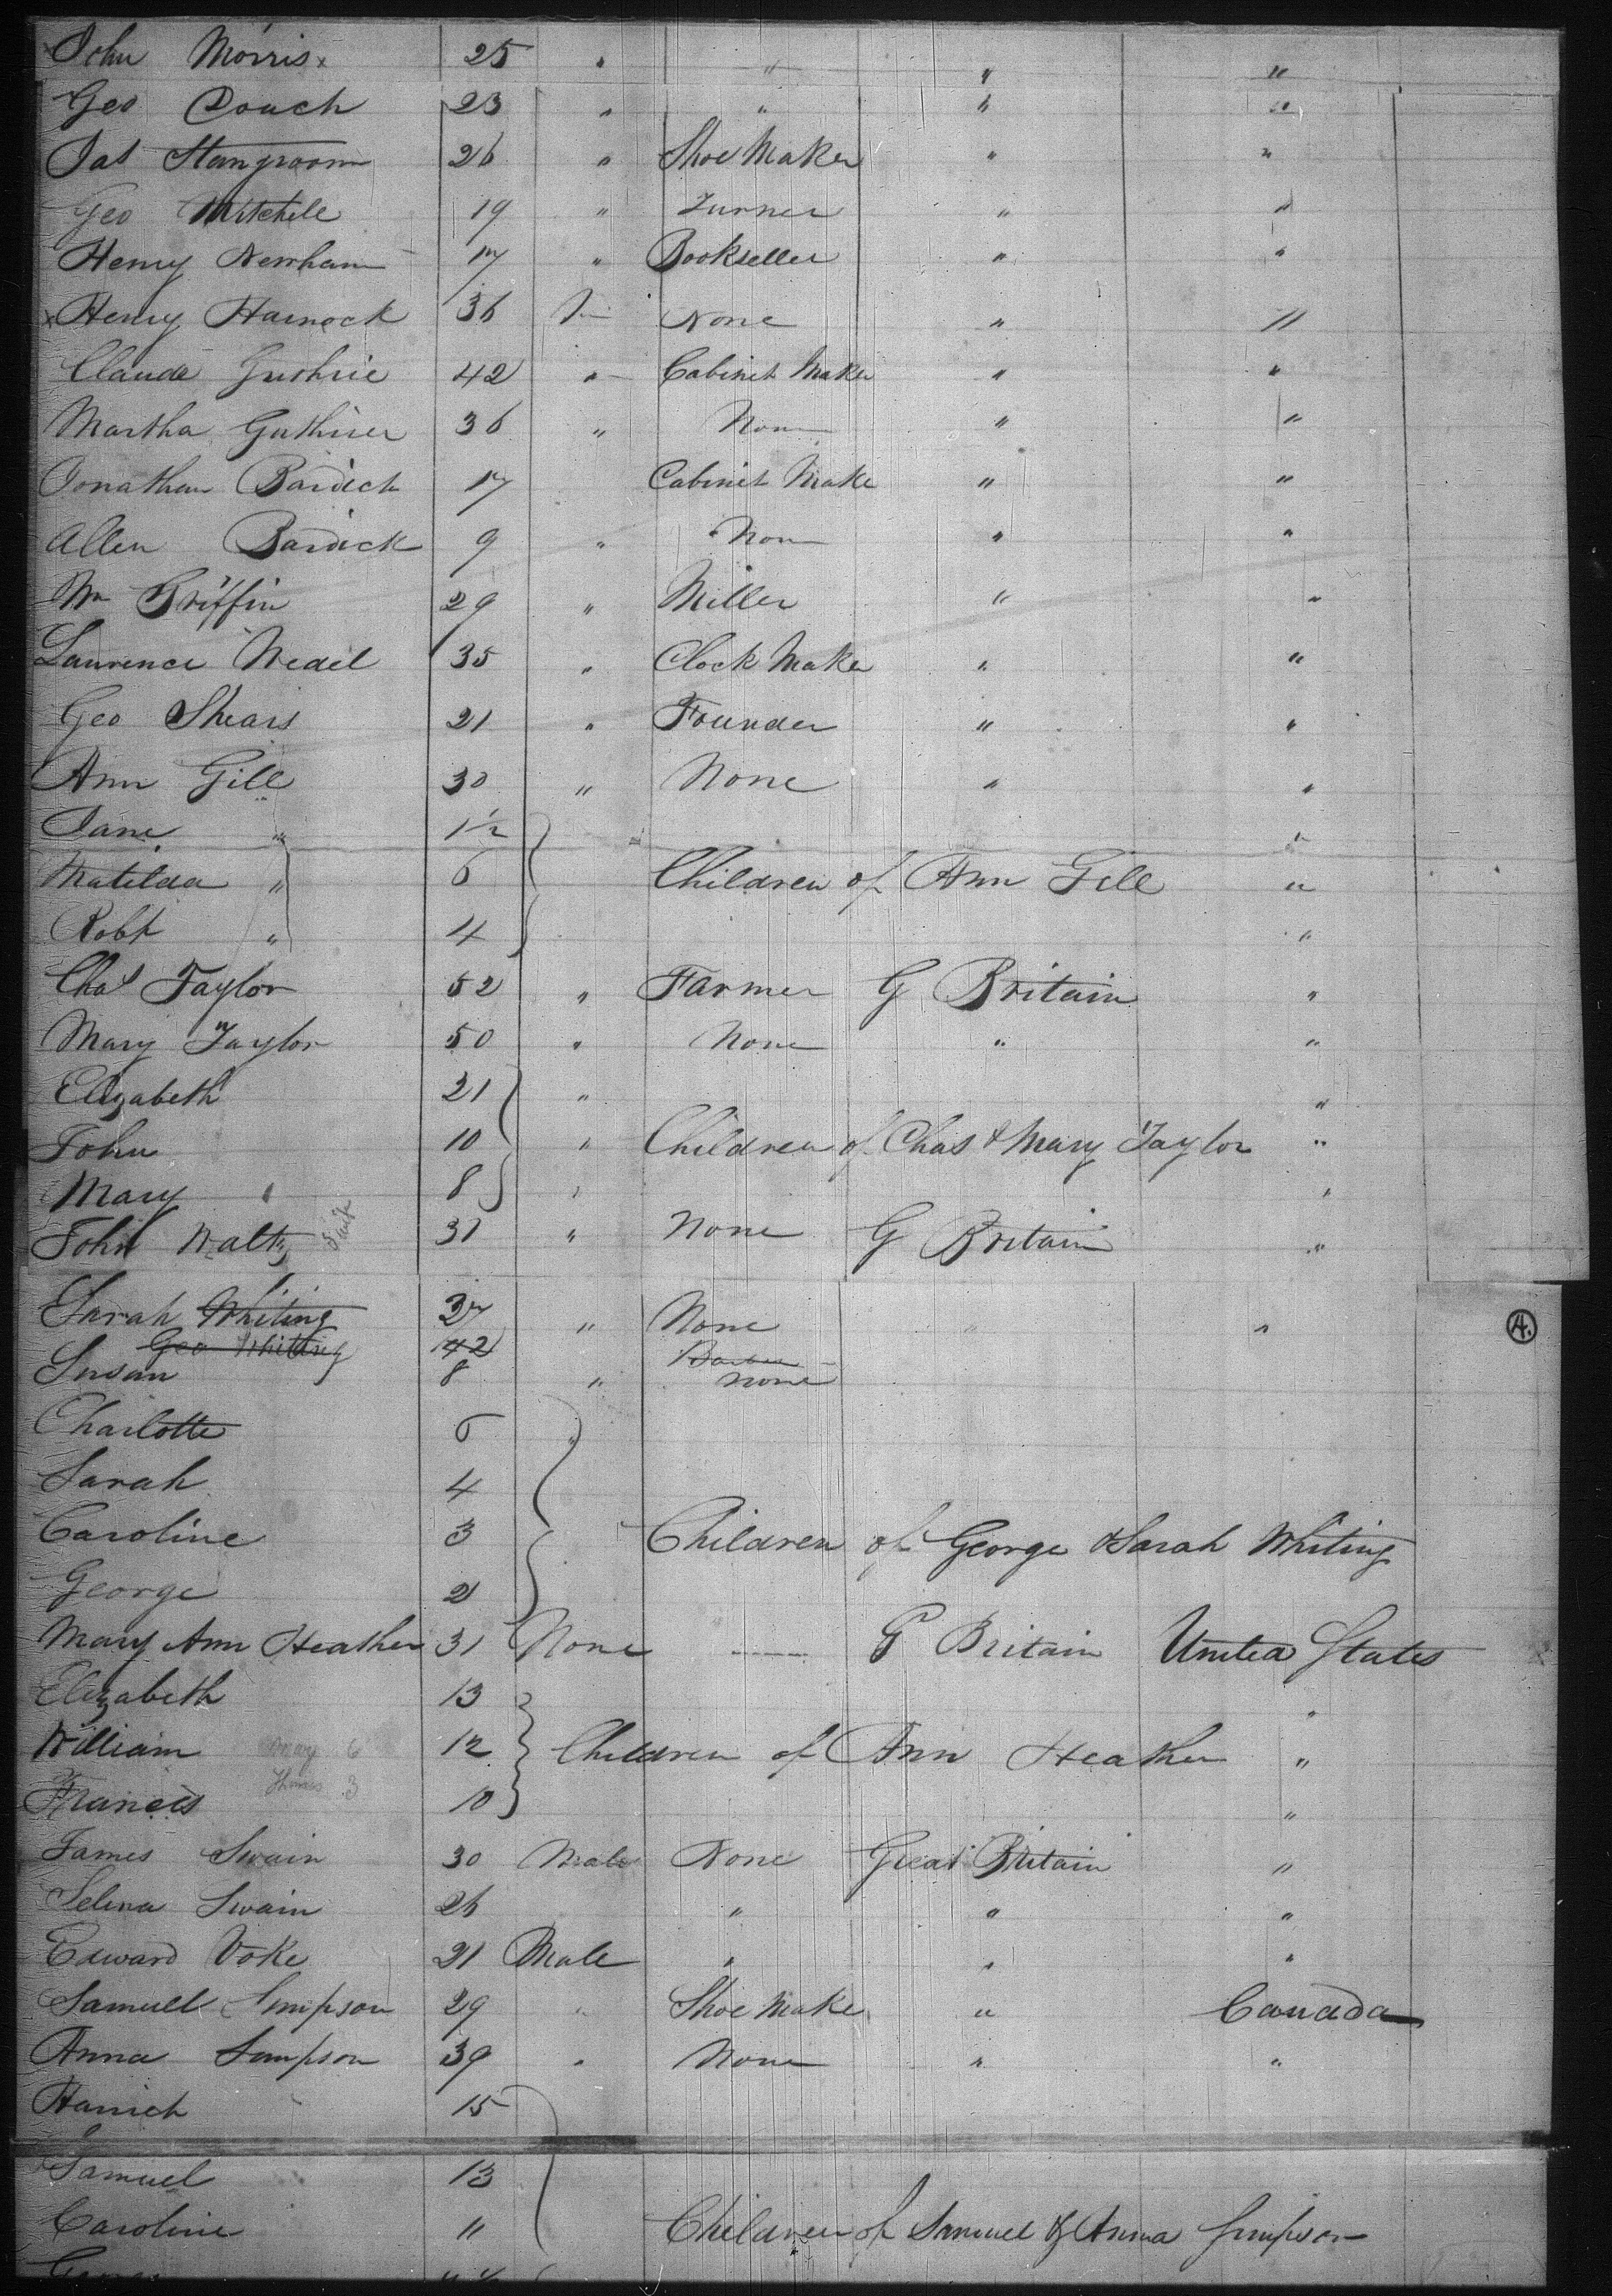 John Morris x 25 " " " "
Geo Couch 23 " " " "
Jas Stangroom 26 " Shoe Maker " "
Geo Mitchele 19 " Turner " "
Henry Newham 17 " Bookseller " "
x Henry Harnock 36 None " "
Claude Guthrie 42 " Cabinet Maker " "
Martha Guthrier 36 " None " "
Jonathan Bardick 17 Cabinet Make " "
Allen Bardick 9 " Non " "
Wm Griffin 29 " Miller " "
Laurence Wedel 35 " Clock Maker " "
Geo Shears 21 " Founder " "
Ann Gill 30 " None " "
Jane " 1½ "
Matilda " 6 Children of Ann Gill "
Robt " 4 "
Chas Taylor 52 " Farmer G Britain "
Mary Taylor 50 " None " "
Elizabeth 21 " "
John 10 " Children of Chas & Mary Taylor "
Mary " 8 " "
John 31 " None G Britain "
Sarah Whiting 37 " None " "
A.
Geo Whitting 42 Barber
Susan 8 " None
Charlotte 6 "
Sarah 4
Caroline 3 Children of George & Sarah Whiting
George 2
Mary Ann Heather 31 None G Britain United States
Elizabeth 13 "
William Mary 6 12 Children of Ann Heather "
Francis Thomas 3 10 "
James Swain 30 Male None Great Britain "
Selina Swain 26 " " "
Edward Voke 21 Male " " "
Samuel Simpson 29 " Shoe Make " Canada
Anna Simpson 39 " None " "
Harriet 15
Samuel 13
Caroline 11 Children of Samuel & Anna Simpson